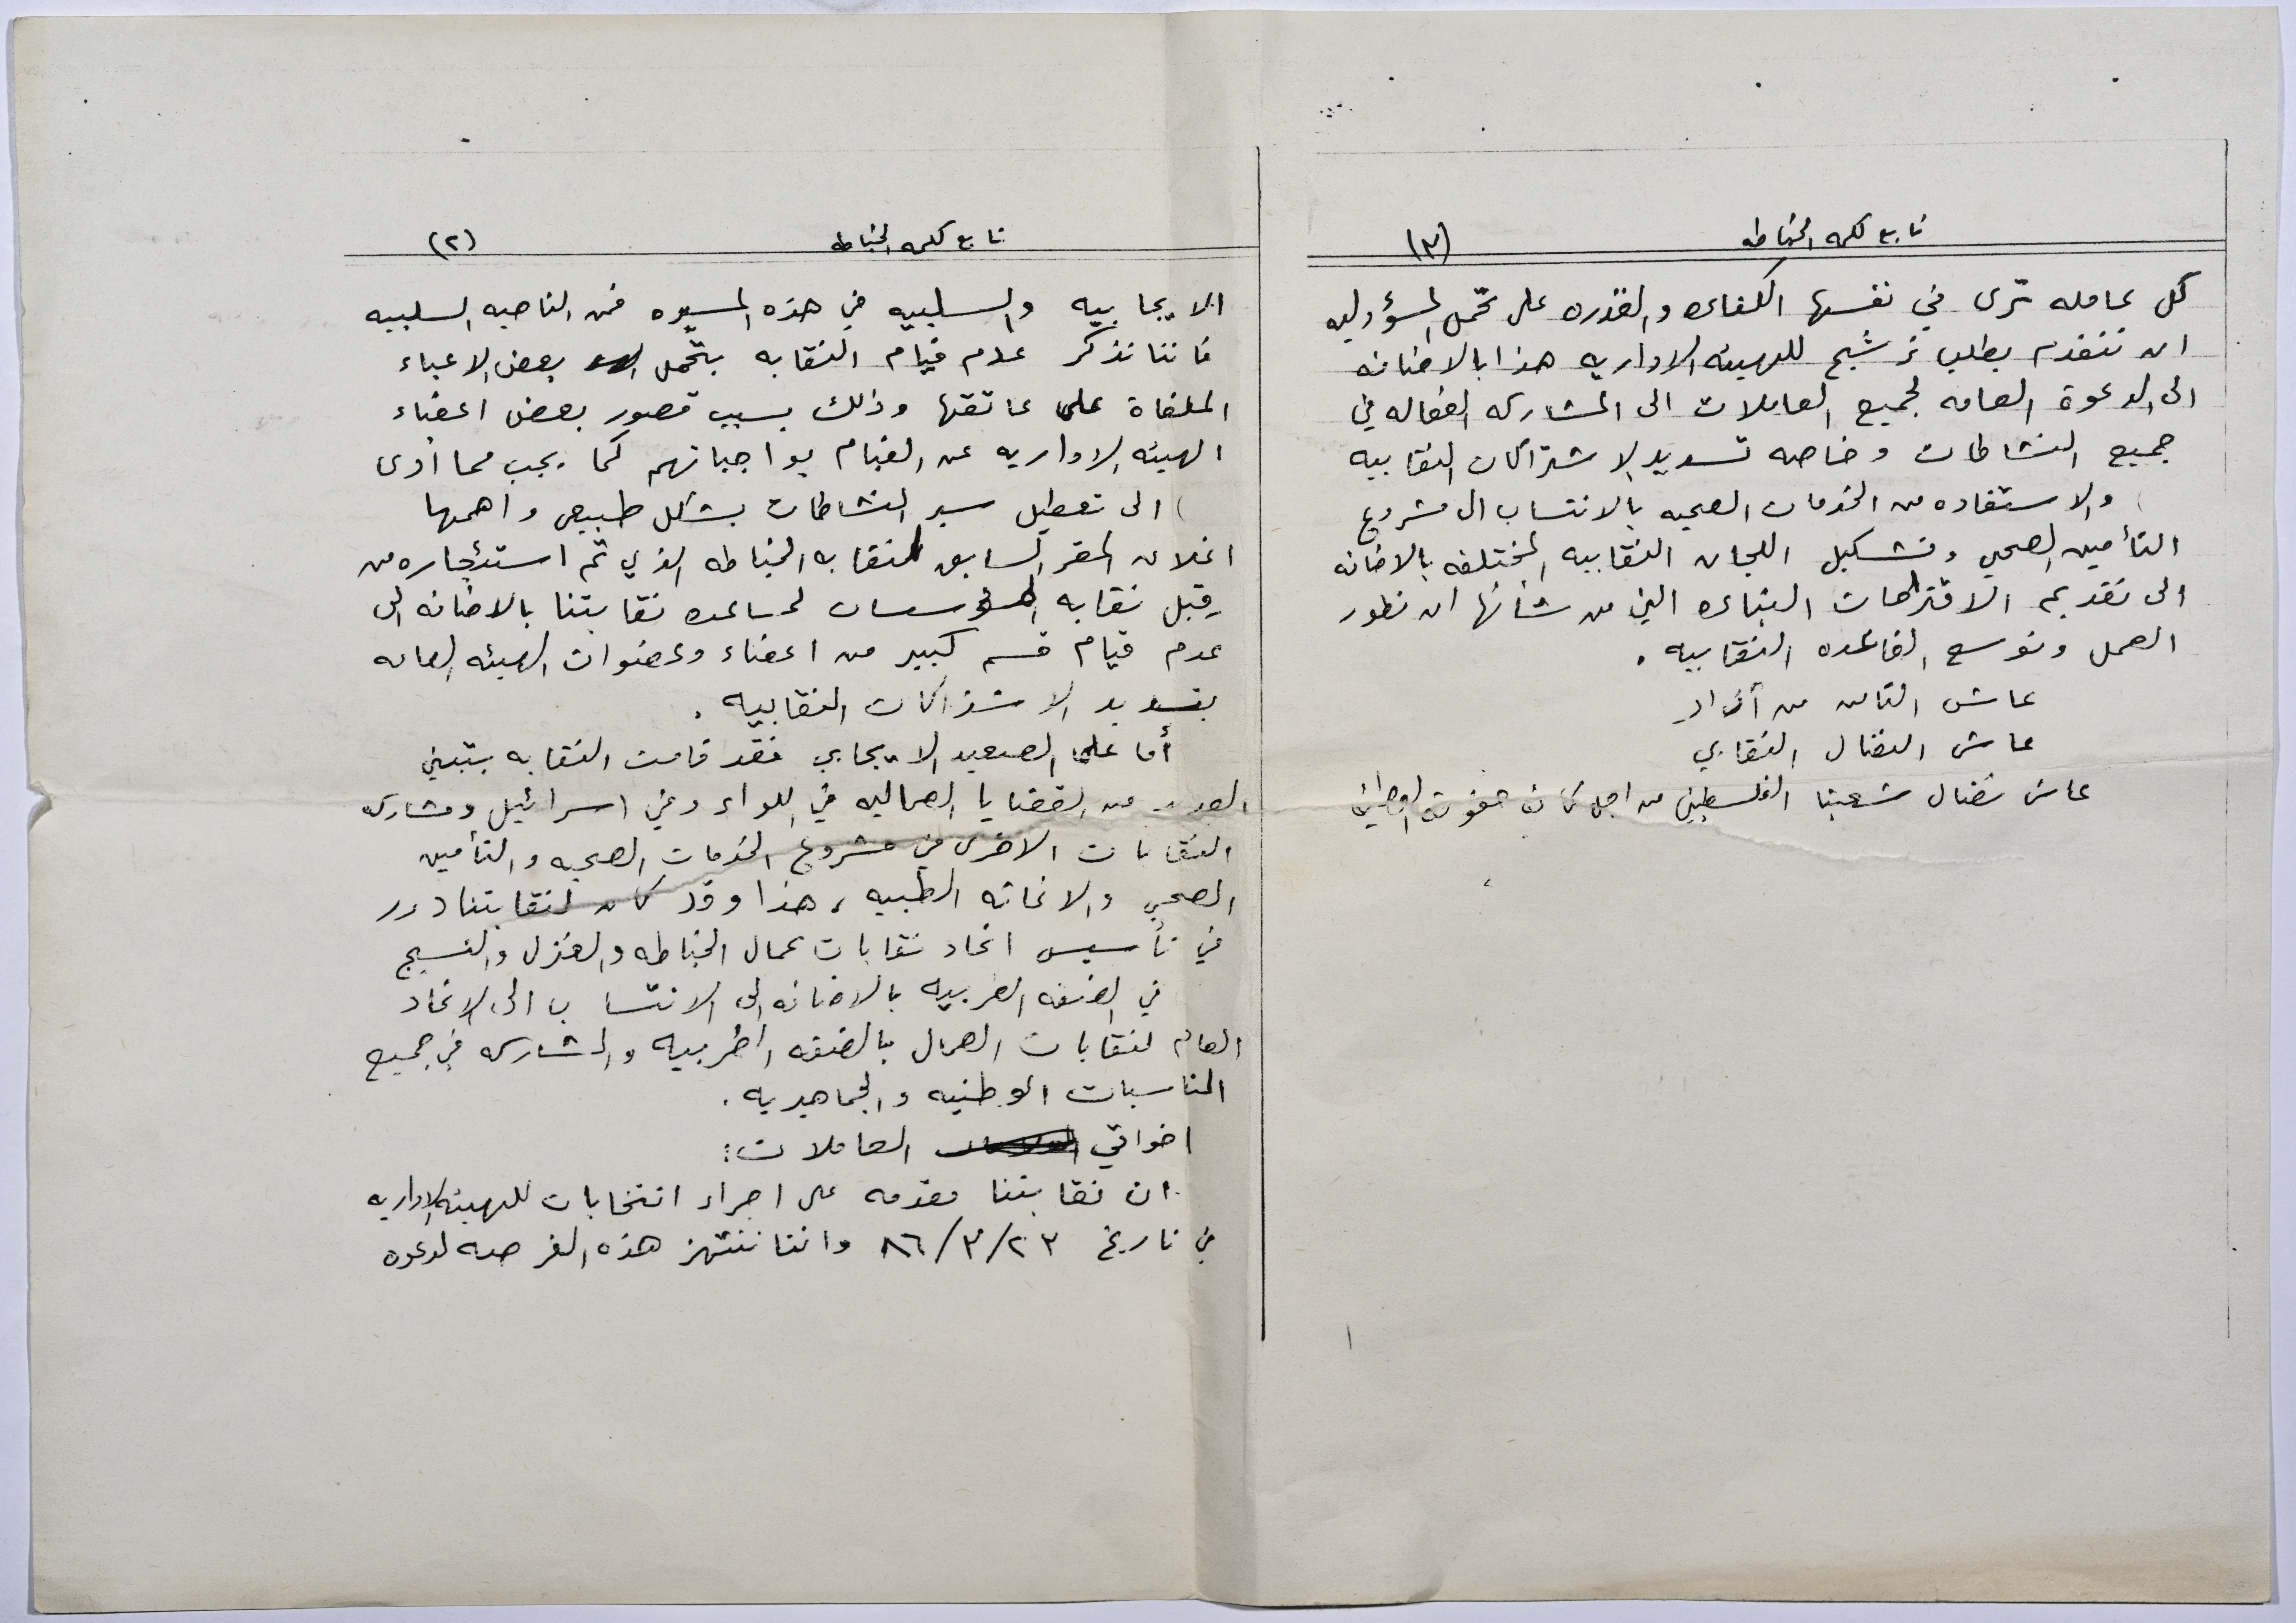 تابع كلمه الخياطه (٢)
الايجابيه والسلبيه في هذه المسيره فمن الناحيه السلبيه
فاننا نذكر عدم قيام النقابه بتحمل بعض الاعباء
الملقاة على عاتقها وذلك بسبب قصور بعض اعضاء
الهيئه الاداريه عن القيام بواجباتهم كما يجب مما أدى
الى تعطيل سير النشاطات بشكل طبيعي واهمها
اغلاق المقر السابق لنقابه الخياطه الذي تم استئجاره من
قبل نقابه المؤسسات لمساعده نقابتنا بالاضافه الى
عدم قيام قسم كبير من اعضاء وعضوات الهيئه العامه
بتسديد الاشتراكات النقابيه .
أما على الصعيد الايجابي فقد قامت النقابه بتبني
العديد من القضايا العماليه في اللواء وفي اسرائيل ومشاركه
النقابات الاخرى في مشروع الخدمات الصحيه والتأمين
الصحي والاغاثه الطبيه ، هذا وقد كان لنقابتنا دور
في تأسيس اتحاد نقابات عمال الخياطه والغزل والنسيج
في الضفه الغربيه بالاضافه الى الانتساب الى الاتحاد
العام لنقابات العمال بالضفه الغربيه والمشاركه في جميع
المناسبات الوطنيه والجماهيريه .
اخواتي العاملات :
ان نقابتنا مقدمه على اجراء انتخابات للهيئه الاداريه
في تاريخ ٢٣/٣/٨٦ واننا ننتهز هذه الفرصه لدعوه
تابع كلمه الخياطه (٣)
كل عامله ترى في نفسها الكفاءه والقدره على تحمل المسؤوليه
ان تتقدم بطلب ترشيح للهيئه الاداريه هذا بالاضافه
الى الدعوة العامه لجميع العاملات الى المشاركه الفعاله في
جميع النشاطات وخاصه تسديد الاشتراكات النقابيه
والاستفاده من الخدمات الصحيه بالانتساب الى مشروع
التأمين الصحي وتشكيل اللجان النقابيه المختلفه بالاضافه
الى تقديم الاقتراحات البناءه التي من شأنها ان تطور
العمل وتوسع القاعده النقابيه .
عاش الثامن من آذار
عاش النضال النقابي
عاش نضال شعبنا الفلسطيني من اجل كافة حقوقه الوطنيه